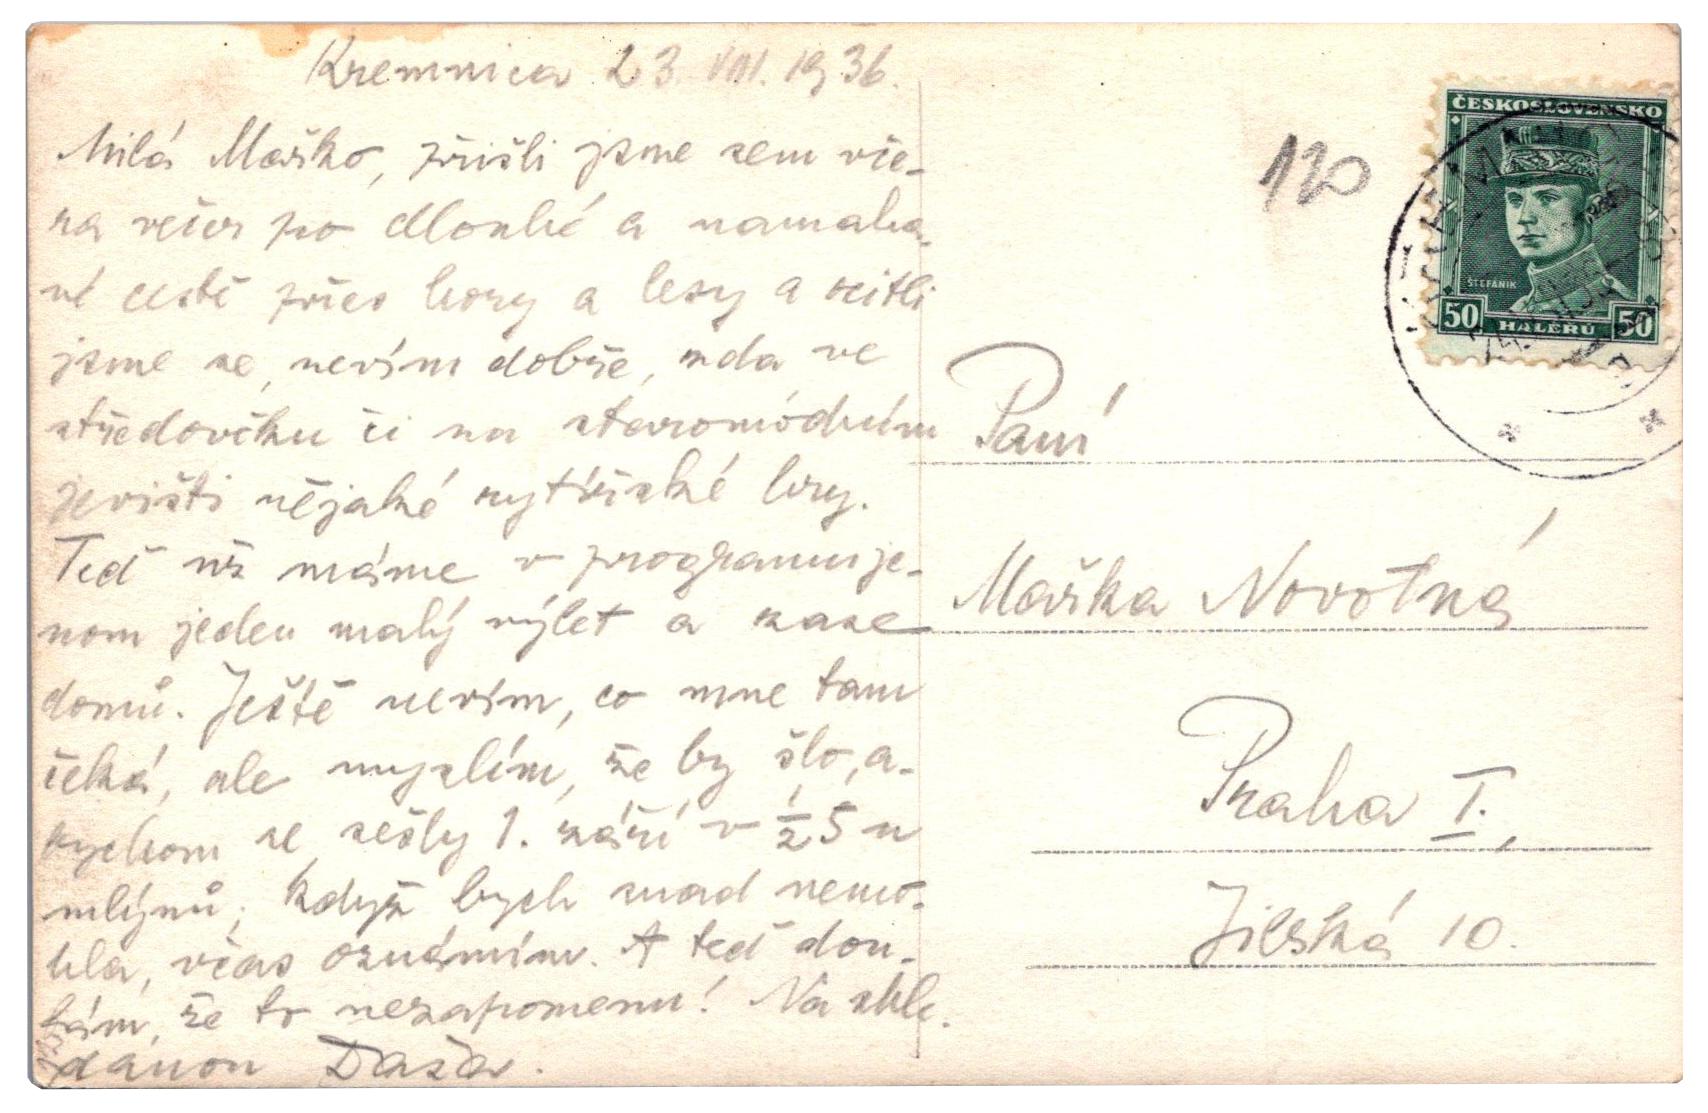 Kremnica 23. VIII. 1936.
Milá Mařko, přišli jsme sem vče-
ra večer po dlouhé a namaha-
vé cestě přes hory a lesy a ocitli
jsme se, nevím dobře, zda ve
středověku či na staromódním
jevišti nějaké rytířské hry.
Teď už máme v programu je-
nom jeden malý výlet a zase
domů. Ještě nevím, co mne tam
čeká, ale myslím, že by šlo, a-
bychom se sešly 1. září v ½5 u
mlýnů. Když bych snad nemo-
hla, včas oznámím. A teď dou-
fám, že to nezapomenu! Na shle-
danou Dáša.
120
ČESKOSLOVENSKO
ŠTEFÁNIK
50 HALÉŘŮ 50
Paní
Mařka Novotná
Praha I.,
Jilská 10.